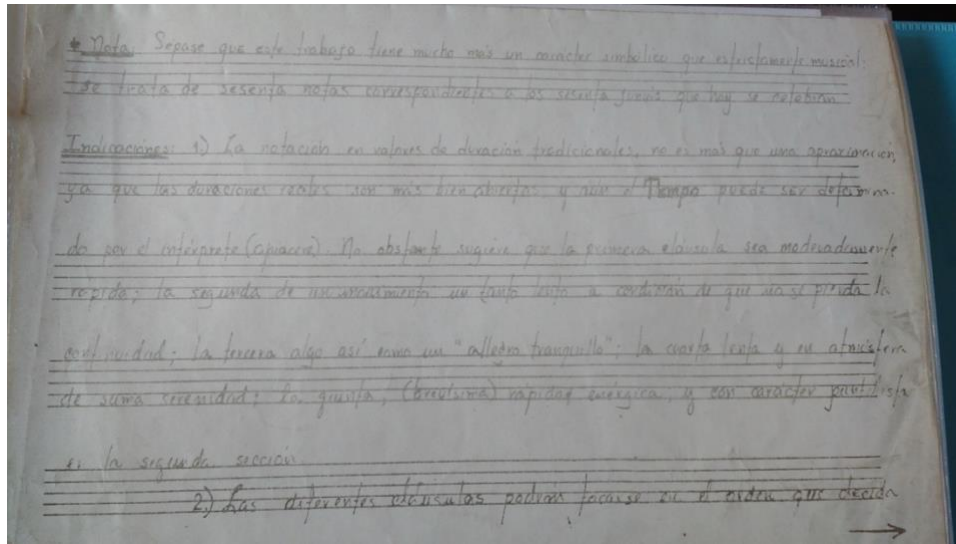 * Nota: Sépase que este trabajo tiene mucho más un carácter simbólico que estrictamente musical:
se trata de sesenta notas correspondientes a los sesenta que hoy se celebran
Indicaciones: 1.) La notación en valores de duración tradicionales, no es más que una aproximación,
ya que las duraciones reales son más bien abiertas y aún el Tiempo puede ser determina-
do por el intérprete (a piacere). No obstante sugiere que la primera cláusula sea moderadamente
rápida; la segunda de un movimiento un tanto lento a condición de que no se pierda la
continuidad; la tercera algo así como un "allegro tranquillo"; la cuarta lenta y en atmósfera
de suma serenidad; la quinta, (brevísima) rápida y enérgica, y con carácter puntillista
en la segunda sección.
2.) Las diferentes cláusulas podrán tocarse en el orden que decida